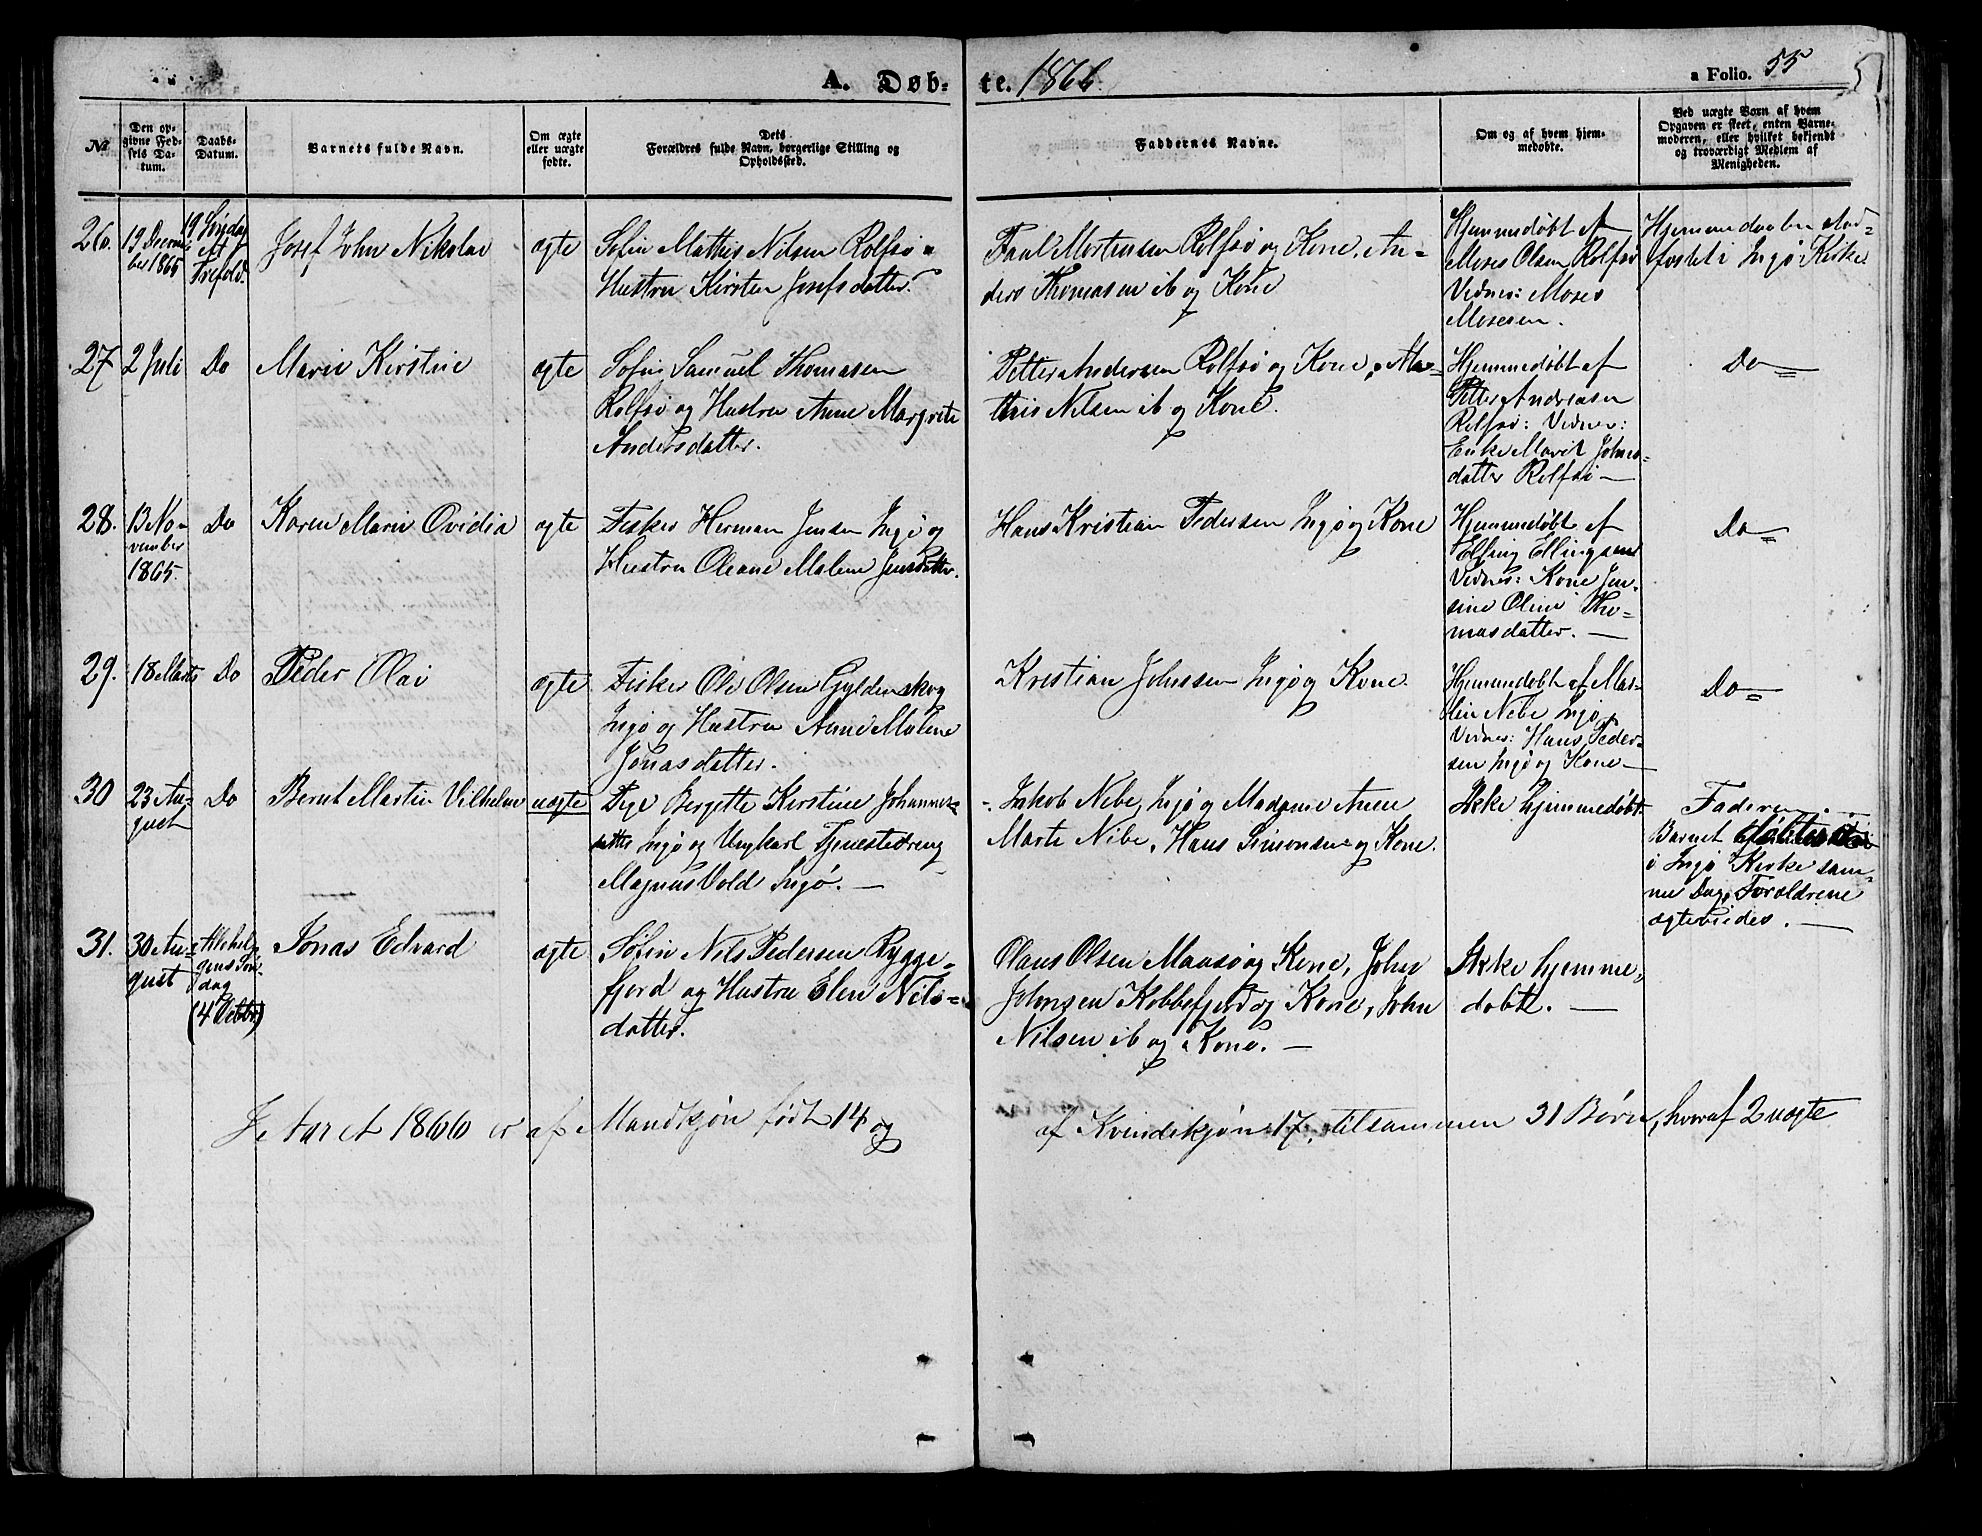 A. Døb-
te. 1866.
a Folio. 55
No
Den op-
givne Fød-
sels Da-
tum.
Daabs-
Datum.
Barnets fulde Navn.
Om ægte
eller uægte
fødte.
Dets
Forældres fulde Navn, borgerlige Stilling og
Opholdssted.
Faddernes Navne.
Om og af hvem hjem-
medøbte.
Ved uægte Børn af hvem
Opgaven er skeet, enten Barne-
moderen, eller hvilket bekjendt
og troværdigt Medlem af
Menigheden.
26.
19 Decem-
ber 1865
19 Søndag
ef
Trefold.
Josef John Nikolai
ægte
Søfin Mathis Nilsen Rolfsø &
Hustru Kirsten Josefsdatter.
Paul Mortensen Rolfsø og Kone, An-
ders Thomasen ib og Kone
Hjemmedøbt af
Moses Olsen Rolfsø
Vidner: Moses
Mosesen.
Hjemmedaaben stad-
fæstet i Ingø Kirke
27
2 Juli
Do
Marie Kirstine
ægte
Søfin Samuel Thomasen
Rolfsø og Hustru Anne Margrete
Andersdatter.
Petter Andersen Rolfsø og Kone, Ma-
this Nilsen ib og Kone.
Hjemmedøbt af
Petter Andreasen
Rolfsø: Vidner:
Enke Marit Johns-
datter Rolfsø —
Do =
28.
13 No-
vember
1865.
Do
Karen Marie Ovidia
ægte
Fisker Herman Jensen Ingø og
Hustru Oleane Malene Jensdatter.
Hans Kristian Pedersen Ingø og Kone
Hjemmedøbt af
Elling Ellingsen
Vidner: Kone Jen-
sine Oline Tho-
masdatter. —
Do =
29.
18 Marts
Do
Peder Olai
ægte
Fisker Ole Olsen Gyldenskog
Ingø og Hustru Anne Malene
Jonasdatter.
Kristian Johnsen Ingø og Kone.
Hjemmedøbt af Mar-
tin Nebe Ingø,
Vidner: Hans Peder-
sen Ingø og Kone —
Do =
30
23 Au-
gust
Do
Bernt Martin Vilhelm
uægte
Pige Bergette Kirstine Johannes-
datter Ingø og Ungkarl Tjenestedreng
Magnus Vold Ingø. —
Jakob Nebe, Ingø og Madame Anne
Marte Nibe, Hans Simonsen og Kone.
Ikke hjemmedøbt.
Faderen. —
Barnet
i Ingø Kirke sam-
me Dag, Forældrene
ægteviedes. —
31.
30 Au-
gust
Allehel-
gens Søn-
dag
(4 Octbr)
Jonas Edvard
ægte
Søfin Nils Pedersen Rygge-
fjord og Hustru Elen Nils-
datter.
Olaus Olsen Maasø og Kone, John
Johnsen Kobbefjord og Kone, John
Nilsen ib og Kone. —
Ikke hjemme-
døbt. —
I Aaret 1866 er af Mandkjøn født 14 og
af Kvindekjøn 17, tilsammen 31 Børn, hvoraf 2 uægte